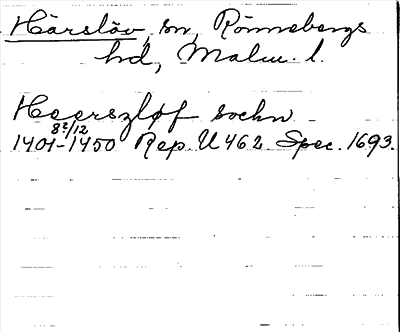 Härslöv, sn, Rönnebergs
hd, Malm. l.
Heerszløf sochn
8²/12
1401-1450 Rep. U 462. Spec. 1693.